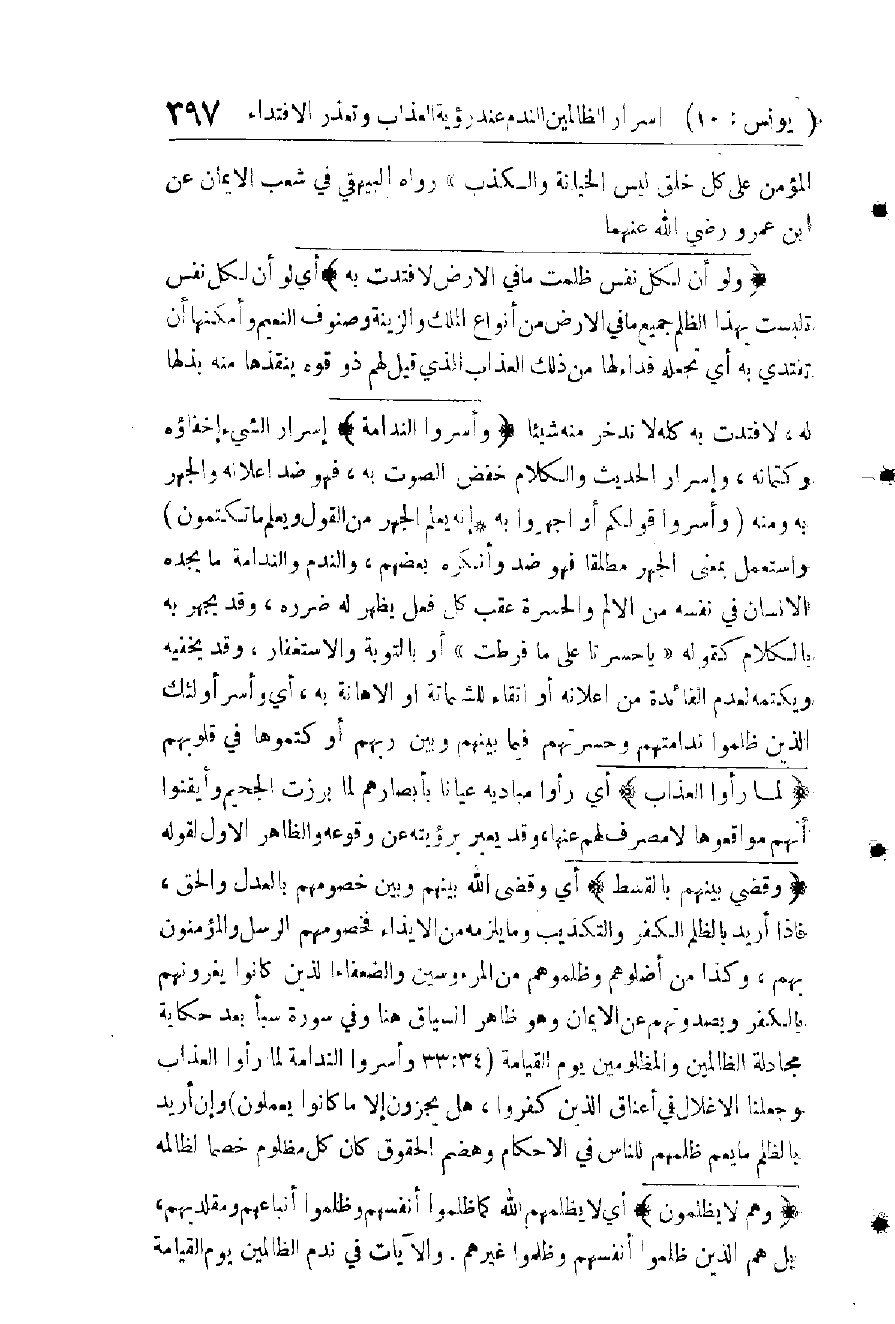 ( يونس : ١٠ ) اسرار الظالمين الندم عند رؤية العذاب وتعذر الافتداء ٣٩٧
المؤمن على كل خلق ليس الخيانة والكذب » رواه البيهقي في شعب الايمان عن
ابن عمرو رضي الله عنهما
﴿ ولو أن لكل نفس ظلمت مافي الارض لافتدت به ﴾ أي لو أن لكل نفس
تلبست بهذا الظلم جميع مافي الارض من أنواع الملك والزينة وصنوف النعيم وأمكنها أن
تفتدي به أي تجعله فداء لها من ذلك العذاب الذي قيل لهم ذو قوه ينقذها منه بذلها
له ، لافتدت به كله لا تدخر منه شيئا ﴿ وأسروا الندامة ﴾ إسرار الشيء إخفاؤه
وكتمانه ، وإسرار الحديث والكلام خفض الصوت به ، فهو ضد اعلانه والجهر
به ومنه ( وأسروا قولكم أو اجهروا به * إنه يعلم الجهر من القول ويعلم ما تكتمون )
واستعمل بمعنى الجهر مطلقا فهو ضد وأنكره بعضهم ، والندم والندامة ما يجده
الانسان في نفسه من الالم والحسرة عقب كل فعل يظهر له ضرره ، وقد يجهر به
بالكلام كقوله « ياحسرتا على ما فرطت » أو بالتوبة والاستغفار ، وقد يخفيه
ويكتمه لعدم الفائدة من اعلانه أو اتقاء للشماتة او الاهانة به ، أي وأسر أولئك
الذين ظلموا ندامتهم وحسرتهم فيما بينهم وبين ربهم أو كتموها في قلوبهم
﴿ لمـا رأوا العذاب ﴾ أي رأوا مباديه عيانا بأبصارهم لما برزت الجحيم وأيقنوا
أنهم مواقعوها لا مصرف لهم عنها، وقد يعبر برؤيته عن وقوعه والظاهر الاول لقوله
﴿ وقضي بينهم بالقسط ﴾ أي وقضى الله بينهم وبين خصومهم بالعدل والحق ،
فاذا أريد بالظلم الكفر والتكذيب وما يلزمه من الايذاء فخصومهم الرسل والمؤمنون
بهم ، وكذا من أضلوهم وظلموهم من المرءوسين والضعفاء الذين كانوا يغرونهم
بالكفر ويصدونهم عن الايمان وهو ظاهر السياق هنا وفي سورة سبأ بعد حكاية
مجادلة الظالمين والمظلومين يوم القيامة ( ٣٣:٣٤ وأسروا الندامة لما رأوا العذاب
وجعلنا الاغلال في أعناق الذين كفروا ، هل يجزون إلا ما كانوا يعملون) وإن أريد
بالظلم ما يعم ظلمهم للناس في الاحكام وهضم الحقوق كان كل مظلوم خصما لظالمه
﴿ وهم لا يظلمون ﴾ أي لا يظلمهم الله كما ظلموا أنفسهم وظلموا أتباعهم ومقلديهم،
بل هم الذين ظلموا أنفسهم وظلموا غيرهم . والآيات في ندم الظالمين يوم القيامة